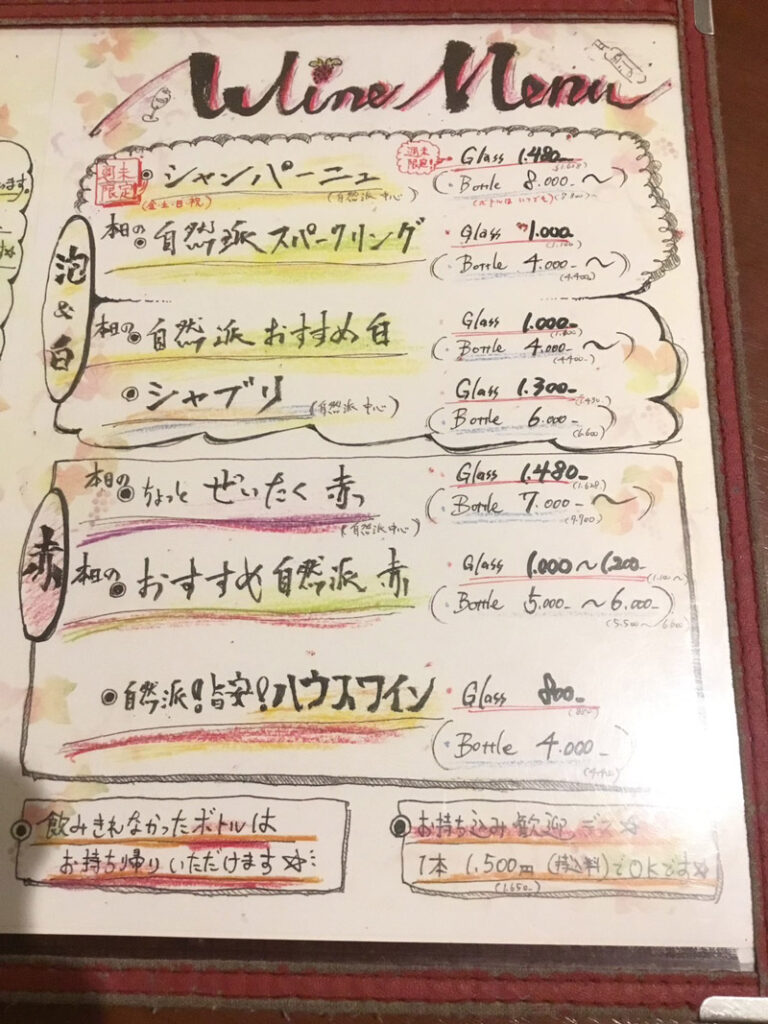 Wine Menu
泡&白
週末限定
シャンパーニュ
(金・土・日・祝)
(自然派中心)
週末限定!
Glass 1.480-
(1.628)
(・Bottle 8.000-～)
(ボトルはいつでも)(8.800)～
本日の 自然派 スパークリング
Glass 1.000-
(1.100)
(・Bottle 4.000-～)
(4.400)
本日の 自然派 おすすめ 白
Glass 1.000-
(・Bottle 4.000-～)
(4.400)
シャブリ (自然派中心)
Glass 1.300-
(1.430)
(・Bottle 6.000-)
(6.600)
赤
本日の ちょっと ぜいたく 赤っ
(自然派中心)
Glass 1.480-
(1.628)
(・Bottle 7.000-～)
(7.700)
本日の おすすめ 自然派 赤
Glass 1.000～1.200-
(1.100～)
(・Bottle 5.000-～6.000-)
(5.500～6.600)
自然派!旨安!ハウスワイン
Glass 800-
(880)
(・Bottle 4.000-)
(4.400)
飲みきれなかったボトルは
お持ち帰りいただけます☆
お持ち込み歓迎デス☆
1本 1,500円(持込料)でOKです☆
(1.650-)